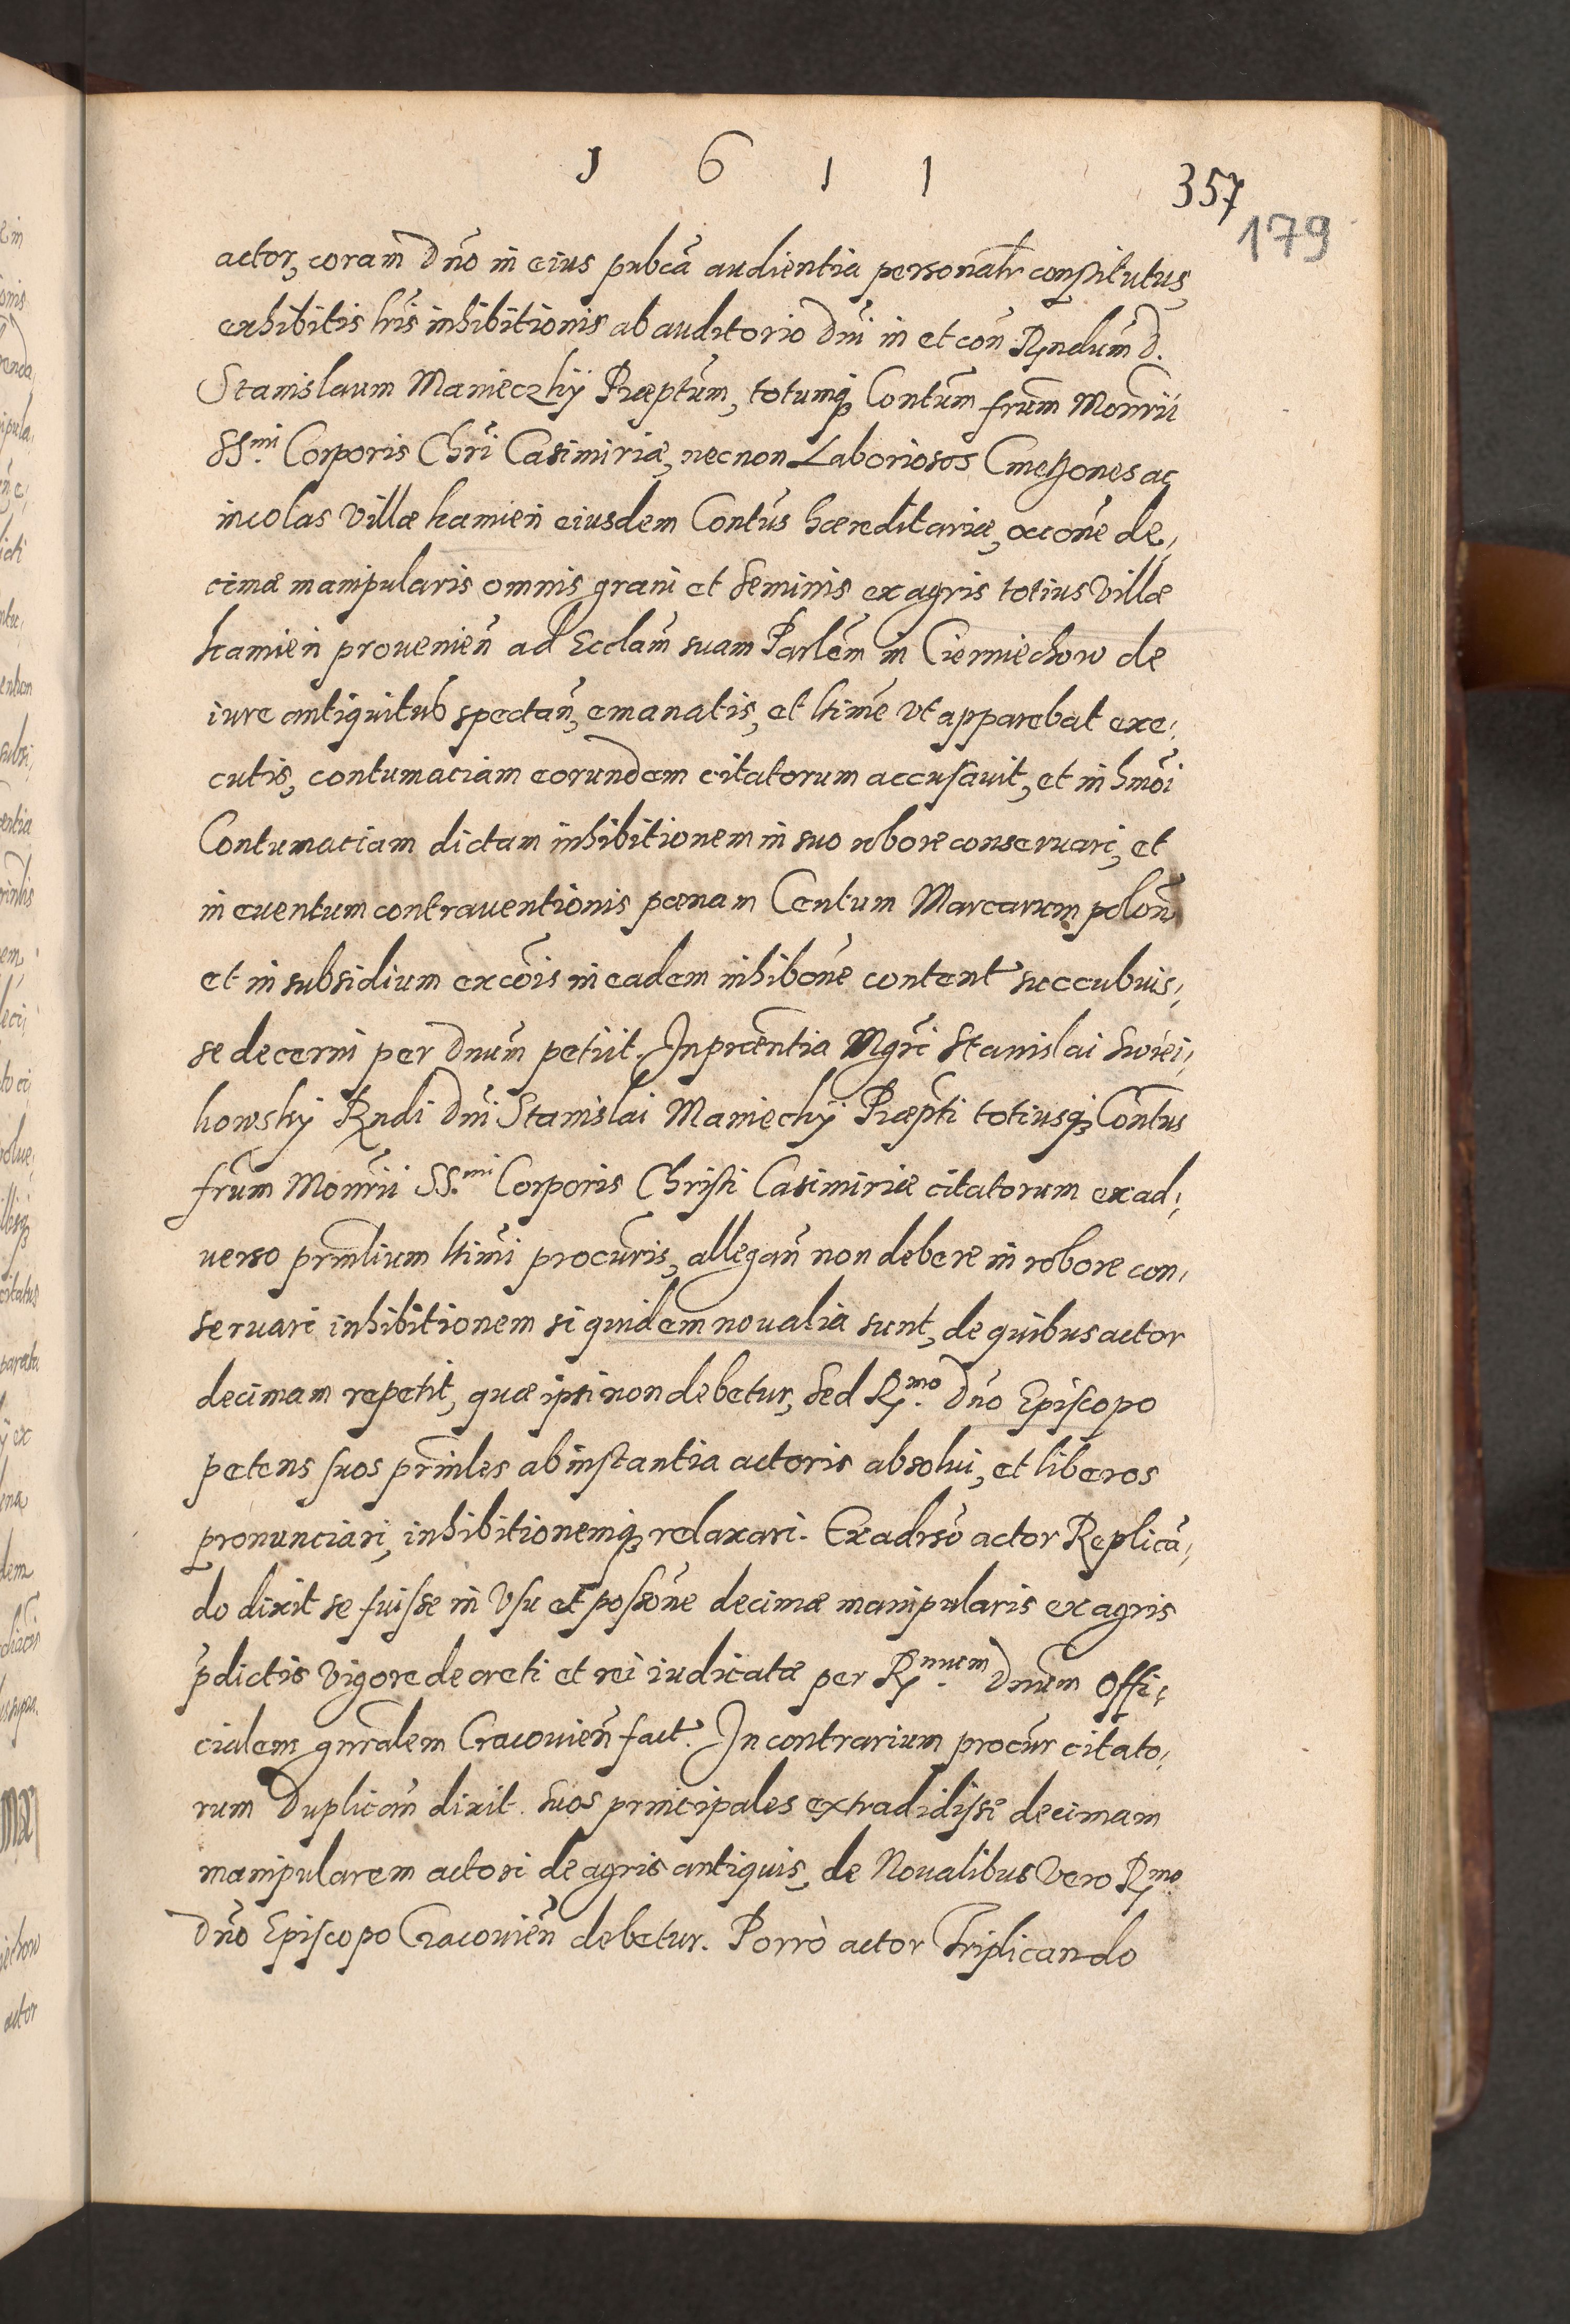 1 6 1 1
357
179
actor, coram Dno in eius pubca audientia personalr constitutus
exhibitis lris inhibitionis ab auditorio Dni in et con Rndum D.
Stanislaum Manieczky Præptum, totumq Contum frum Monrii
SSmi Corporis Chri Casimiriæ, necnon Laboriosos Cmethones ac
incolas villæ kamien eiusdem Contus hæreditariæ, occone de,
cimæ manipularis omnis grani et seminis ex agris totius villæ
kamien prouenien ad Ecclam suam Parlem in Cierniechow de
iure antiquitus spectan, emanatis, et ltime vt apparebat exe,
cutis, contumaciam eorundem citatorum accusauit, et in hmoi
Contumaciam dictam inhibitionem in suo robore conseruari, et
in euentum contrauentionis pœnam Centum Marcarum polon
et in subsidium excois in eadem inhibone content succubuis,
se decerni per Dnum petiit. In præntia Mgri Stanislai swiei,
kowsky Rndi Dni Stanislai Maniechy Præpti totiusq Contus
frum Monrii SS.mi Corporis Christi Casimiriæ citatorum ex ad,
uerso prinlium ltimi procuris, allegan non debere in robore con,
seruari inhibitionem siquidem noualia sunt, de quibus actor
decimam repetit, quæ ipsi non debetur, sed R.mo Dno Episcopo
petens suos prinles ab instantia actoris absolui, et liberos
pronunciari, inhibitionemq relaxari. Ex adrso actor Replica,
do dixit se fuisse in vsu et possone decimæ manipularis ex agris
pdictis vigore decreti et rei iudicatæ per R. Dnum Offi,
cialem gnralem Cracouien fact. In contrarium procur citato,
rum Duplican dixit suos principales extradidisse decimam
manipularem actori de agris antiquis, de Noualibus vero Rmo
Dno Episcopo Cracouien debetur. Porrò actor Triplicando